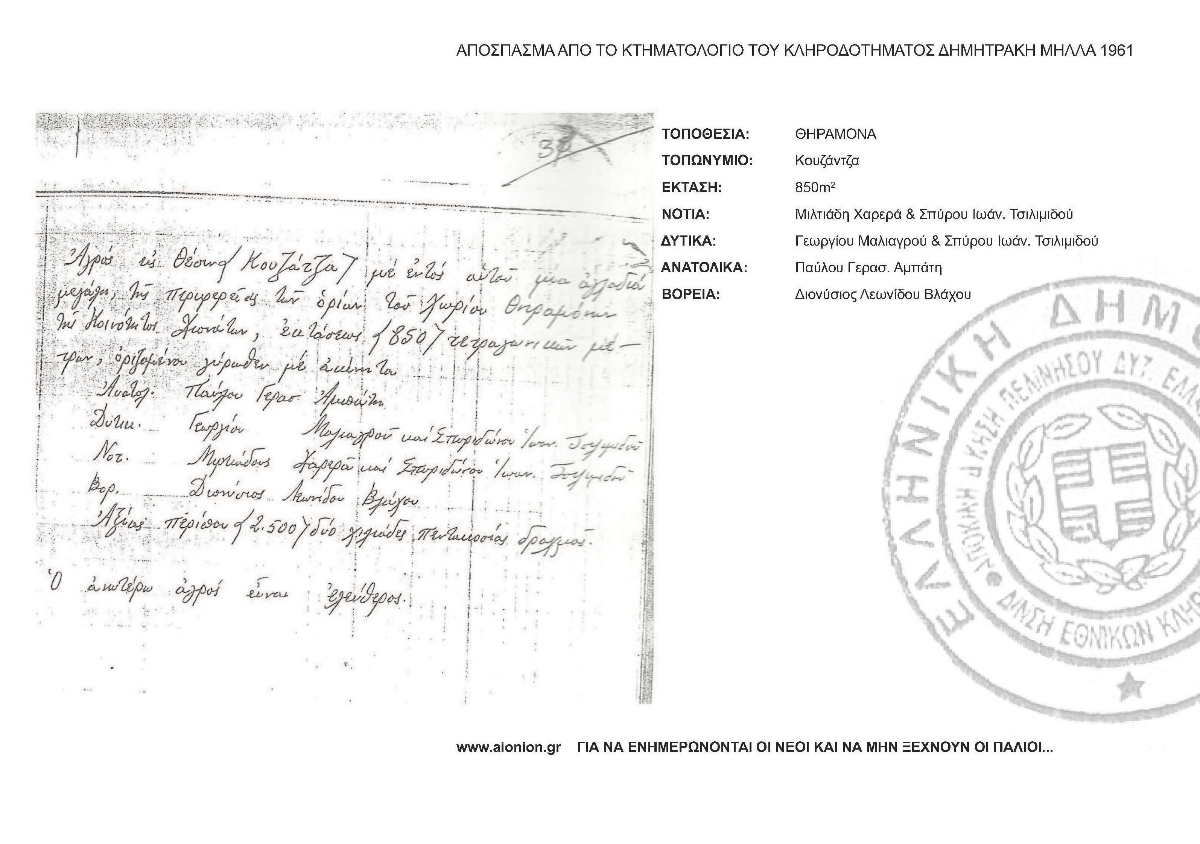 ΑΠΟΣΠΑΣΜΑ ΑΠΟ ΤΟ ΚΤΗΜΑΤΟΛΟΓΙΟ ΤΟΥ ΚΛΗΡΟΔΟΤΗΜΑΤΟΣ ΔΗΜΗΤΡΑΚΗ ΜΗΛΛΑ 1961
Ἀγρός εἰς θέσιν (Κουζάτζα) μέ ἐντός αὐτοῦ μια ἀχλαδιά
μεγάλη, τῆς περιφερείας τῶν ὁρίων τοῦ χωρίου Θηραμόνων
τῆς Κοινότητος Χιονάτων, ἐκτάσεως (850) τετραγωνικῶν μέ-
τρων, ὁριζομένου γύρωθεν μέ ἀκίνητα
Ἀνατολ. Παύλου Γερασ Ἀμπάτη
Δυτικ. Γεωργίου Μαλιαγροῦ καί Σπυριδώνου Ἰωαν. Τσιλιμιδοῦ
Νοτ. Μιλτιάδους Χαρερᾶ καί Σπυριδώνου Ἰωαν. Τσιλιμιδοῦ
Βορ. Διονύσιος Λεωνίδου Βλάχου
Ἀξίας περίπου (2.500) δύο χιλιάδες πεντακοσίας δραχμάς.
Ὁ ἀνωτέρω ἀγρός εἶναι ἐλεύθερος.
ΤΟΠΟΘΕΣΙΑ: ΘΗΡΑΜΟΝΑ
ΤΟΠΩΝΥΜΙΟ: Κουζάντζα
ΕΚΤΑΣΗ: 850m²
ΝΟΤΙΑ: Μιλτιάδη Χαρερά & Σπύρου Ιωάν. Τσιλιμιδού
ΔΥΤΙΚΑ: Γεωργίου Μαλιαγρού & Σπύρου Ιωάν. Τσιλιμιδού
ΑΝΑΤΟΛΙΚΑ: Παύλου Γερασ. Αμπάτη
ΒΟΡΕΙΑ: Διονύσιος Λεωνίδου Βλάχου
ΕΛΛΗΝΙΚΗ ΔΗΜ
ΠΕΛ/ΝΗΣΟΥ ΔΥΤ. ΕΛΛ
Δ/ΝΣΗ ΕΘΝΙΚΩΝ ΚΛΗΡ
www.aionion.gr ΓΙΑ ΝΑ ΕΝΗΜΕΡΩΝΟΝΤΑΙ ΟΙ ΝΕΟΙ ΚΑΙ ΝΑ ΜΗΝ ΞΕΧΝΟΥΝ ΟΙ ΠΑΛΙΟΙ...